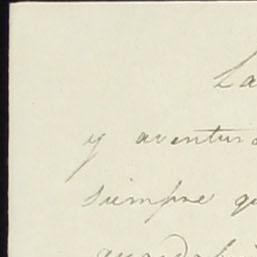 La
y aventura
siempre qu